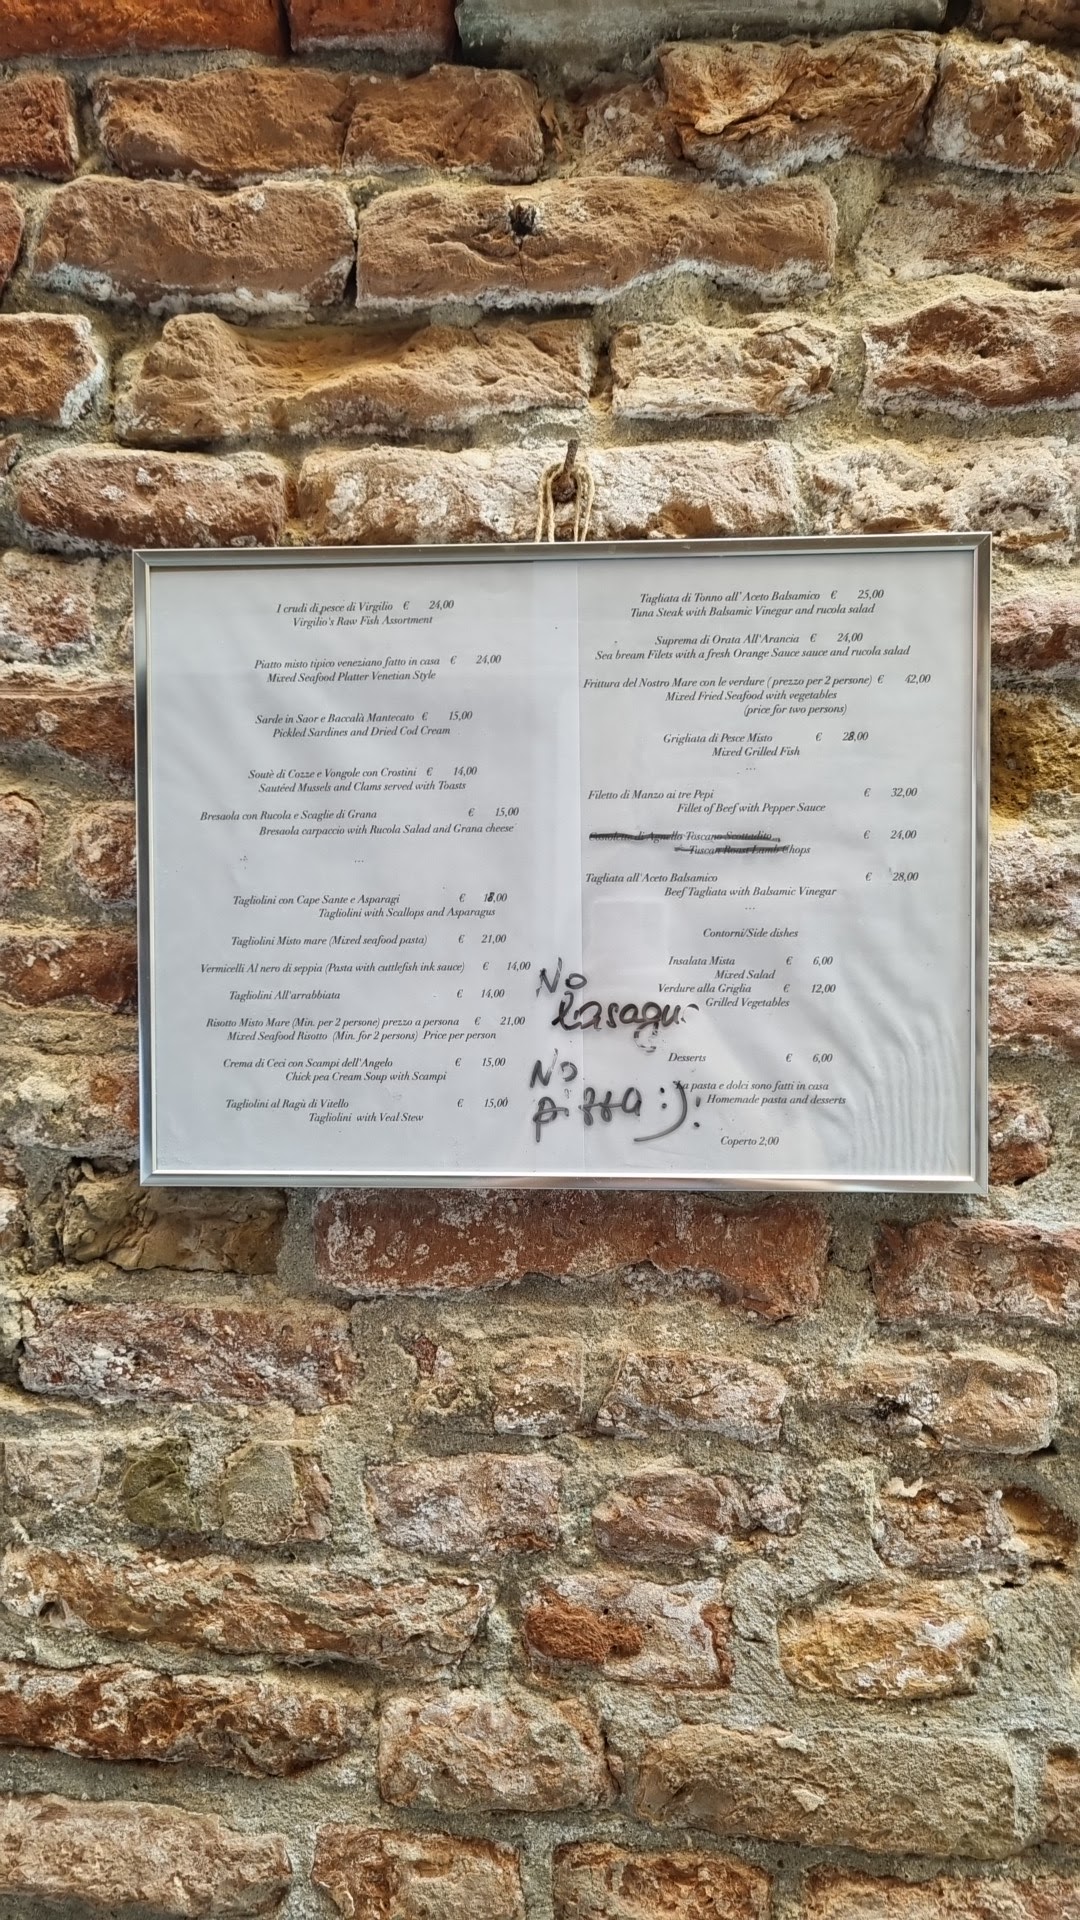 I crudi di pesce di Virgilio € 24,00
Virgilio's Raw Fish Assortment
Piatto misto tipico veneziano fatto in casa € 24,00
Mixed Seafood Platter Venetian Style
Sarde in Saor e Baccalà Mantecato € 15,00
Pickled Sardines and Dried Cod Cream
Soutè di Cozze e Vongole con Crostini € 14,00
Sautéed Mussels and Clams served with Toasts
Bresaola con Rucola e Scaglie di Grana € 15,00
Bresaola carpaccio with Rucola Salad and Grana cheese
...
Tagliolini con Cape Sante e Asparagi € 18,00
Tagliolini with Scallops and Asparagus
Tagliolini Misto mare (Mixed seafood pasta) € 21,00
Vermicelli Al nero di seppia (Pasta with cuttlefish ink sauce) € 14,00
Tagliolini All'arrabbiata € 14,00
Risotto Misto Mare (Min. per 2 persone) prezzo a persona € 21,00
Mixed Seafood Risotto (Min. for 2 persons) Price per person
Crema di Ceci con Scampi dell'Angelo € 15,00
Chick pea Cream Soup with Scampi
Tagliolini al Ragù di Vitello € 15,00
Tagliolini with Veal Stew
No
Lasagna
No
Pizza :)!
Tagliata di Tonno all' Aceto Balsamico € 25,00
Tuna Steak with Balsamic Vinegar and rucola salad
Suprema di Orata All'Arancia € 24,00
Sea bream Filets with a fresh Orange Sauce sauce and rucola salad
Frittura del Nostro Mare con le verdure ( prezzo per 2 persone) € 42,00
Mixed Fried Seafood with vegetables
(price for two persons)
Grigliata di Pesce Misto € 28,00
Mixed Grilled Fish
...
Filetto di Manzo ai tre Pepi € 32,00
Fillet of Beef with Pepper Sauce
di Agnello Toscano Scottadito € 24,00
Tuscan Roast Lamb Chops
Tagliata all'Aceto Balsamico € 28,00
Beef Tagliata with Balsamic Vinegar
...
Contorni/Side dishes
Insalata Mista € 6,00
Mixed Salad
Verdure alla Griglia € 12,00
Grilled Vegetables
Desserts € 6,00
La pasta e dolci sono fatti in casa
Homemade pasta and desserts
Coperto 2,00